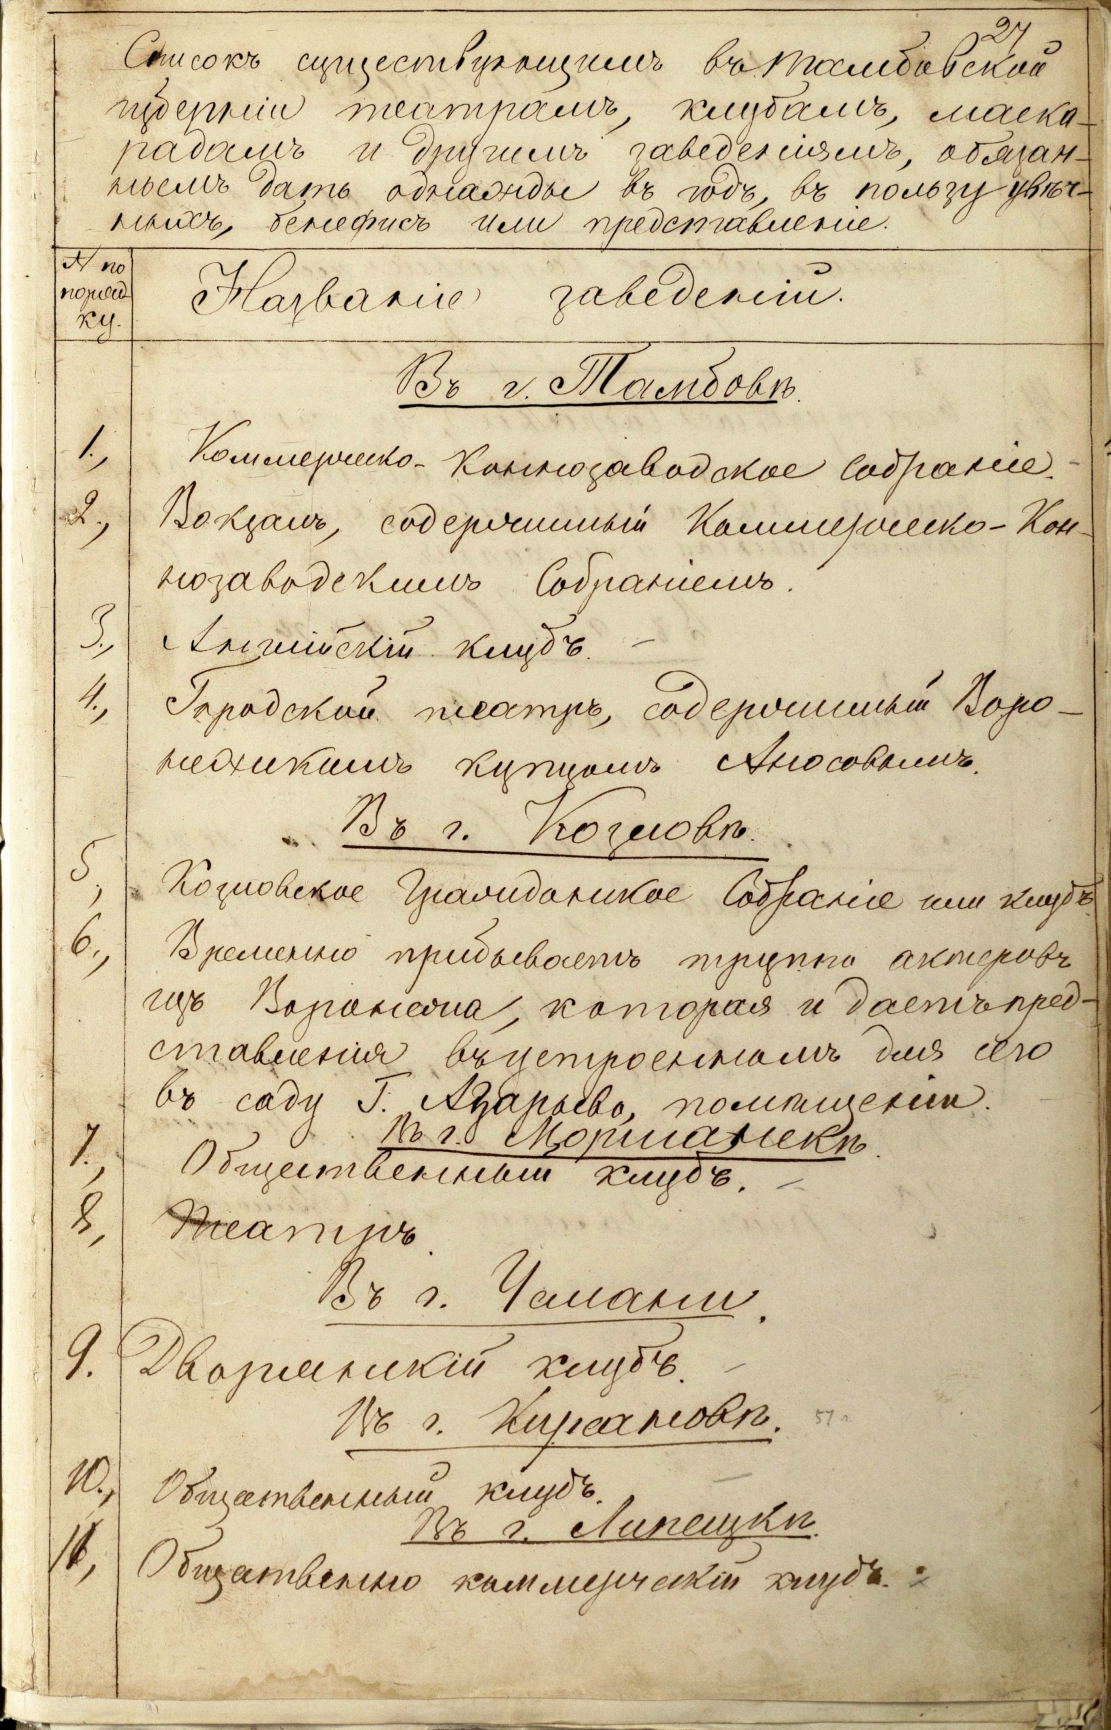 27
Списокъ существующимъ въ Тамбовской
губерніи театрамъ, клубамъ, маска-
радамъ и другимъ заведеніямъ, обязан-
нымъ дать однажды въ годъ, въ пользу увѣч-
ныхъ, бенефисъ или представленіе.
№ по
поряд-
ку.
Названіе заведеній.
Въ г. Тамбовѣ.
1., Коммерческо-Коннозаводское Собраніе. -
2., Вокзалъ, содержимый Коммерческо-Кон-
нозаводскимъ Собраніемъ.
3., Англійскій клубъ. -
4., Городской театръ, содержимый Воро-
нежскимъ купцомъ Аносовымъ.
Въ г. Козловѣ.
5., Козловское Гражданское Собраніе или клубъ
6., Временно прибываетъ труппа актеровъ
изъ Воронежа, которая и даетъ пред-
ставленія въ устроенномъ для сего
въ саду Г. Азарьева, помѣщеніи.
Въ г. Моршанскѣ.
7., Общественный клубъ. -
8, Театръ.
Въ г. Усмани.
9. Дворянскій клубъ. -
Въ г. Кирсановѣ.
10., Общественный клубъ. -
Въ г. Липецкѣ.
11, Общественно коммерческій клубъ.